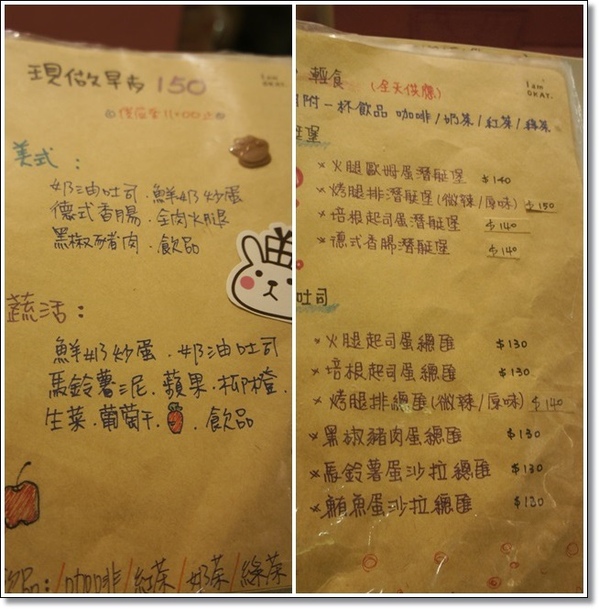 現做早內 150
I am
OKAY.
僅供至11:00止
美式:
奶油吐司.鮮奶炒蛋
德式香腸.全肉火腿
黑椒豬肉.飲品
蔬活:
鮮奶炒蛋.奶油吐司
馬鈴薯泥.蘋果.柳橙.
生菜.葡萄干. .飲品
飲品:/咖啡/紅茶/奶茶/綠茶
輕食 (全天供應)
I am
OKAY.
附一杯飲品 咖啡/奶茶/紅茶/綠茶
艇堡
×火腿歐姆蛋潛艇堡 $140
×烤腿排潛艇堡(微辣/原味) $150
×培根起司蛋潛艇堡 $140
×德式香腸潛艇堡 $140
吐司
×火腿起司蛋總匯 $130
×培根起司蛋總匯 $130
×烤腿排總匯(微辣/原味) $140
×黑椒豬肉蛋總匯 $130
×馬鈴薯蛋沙拉總匯 $130
×鮪魚蛋沙拉總匯 $130